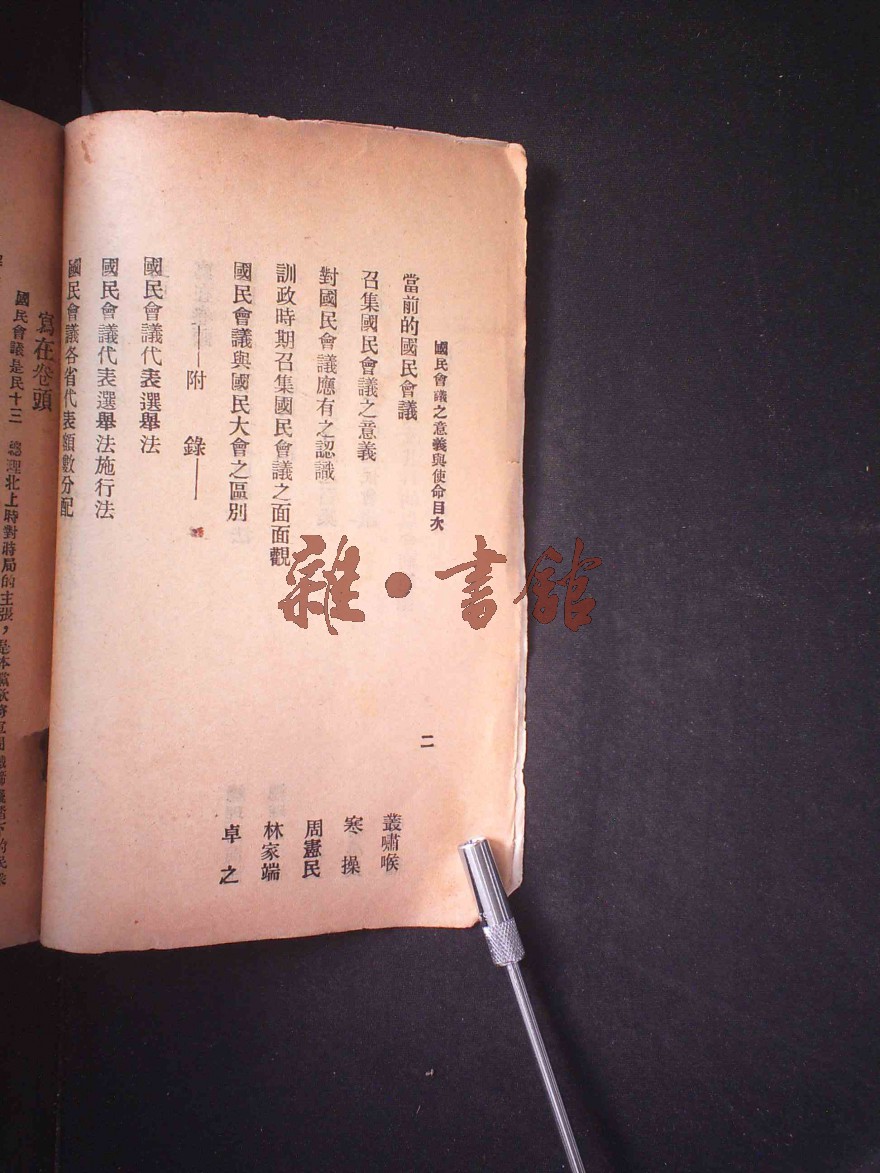 國民會議之意義與使命目次
二
當前的國民會議
叢嘯喉
召集國民會議之意義
寒操
對國民會議應有之認識
周憲民
訓政時期召集國民會議之面面觀
林家端
國民會議與國民大會之區別
卓之
——附 錄——
國民會議代表選舉法
國民會議代表選舉法施行法
國民會議各省代表額數分配
寫在卷頭
國民會議是民十三 總理北上時對時局的主張，是本黨
雜·書館